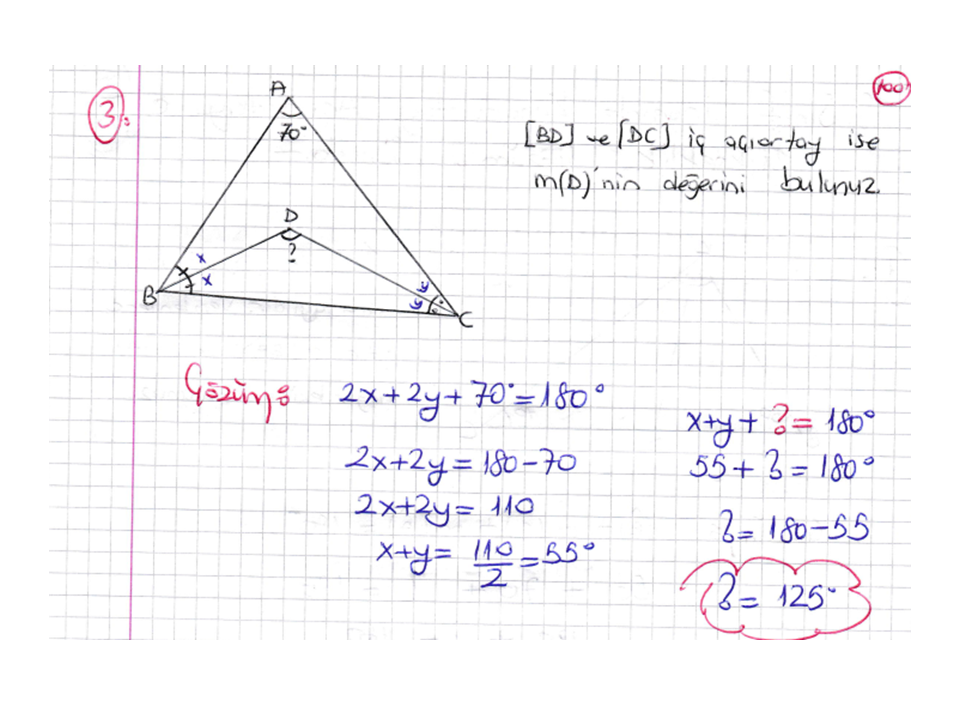 3.
100
A
70°
[BD] ve [DC] iç açıortay ise
m(D)'nin değerini bulunuz
D
?
x
x
y
y
B
C
Çözüm:
2x+2y+70°=180°
2x+2y=180-70
2x+2y= 110
x+y= 110/2 =55°
x+y+ ?= 180°
55+ ?=180°
?= 180-55
?= 125°